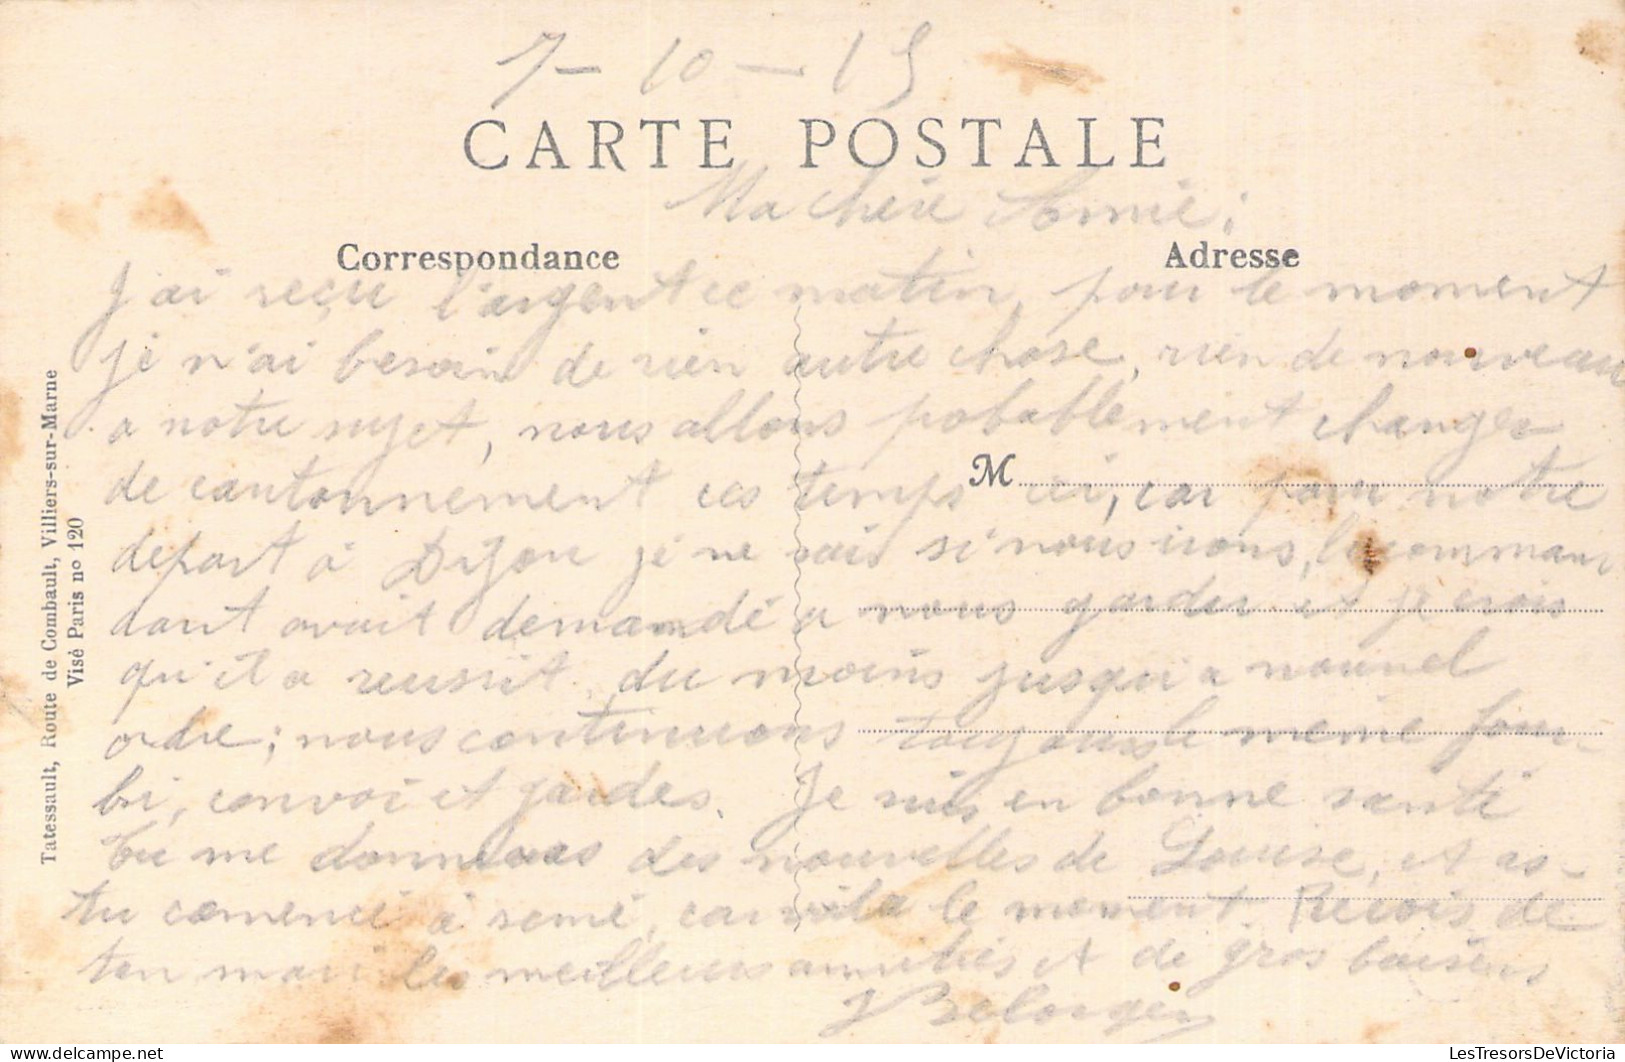 7 - 10 - 15
CARTE POSTALE
Ma chère Amie;
Correspondance
Adresse
J'ai reçu l'argent ce matin, pour le moment
je n'ai besoin de rien autre chose, rien de nouveau
a notre sujet, nous allons probablement changer
de cantonnement ces temps ici, car pour notre
M
depart à Dijon je ne sais si nous irons, le comman
dant avait demandé a nous garder et je crois
qu'il a reussit, du moins jusqu'a nouvel
ordre; nous continuons toujours le même four-
bi, convoi et gardes. Je suis en bonne santé
tu me donneras des nouvelles de Louise, et as-
tu comencé à semé, car voila le moment. Recois de
ton mari les meilleurs amitiés et de gros baisers
Tatessault, Route de Combault, Villiers-sur-Marne
Visé Paris no 120
LesTresorsDeVictoria